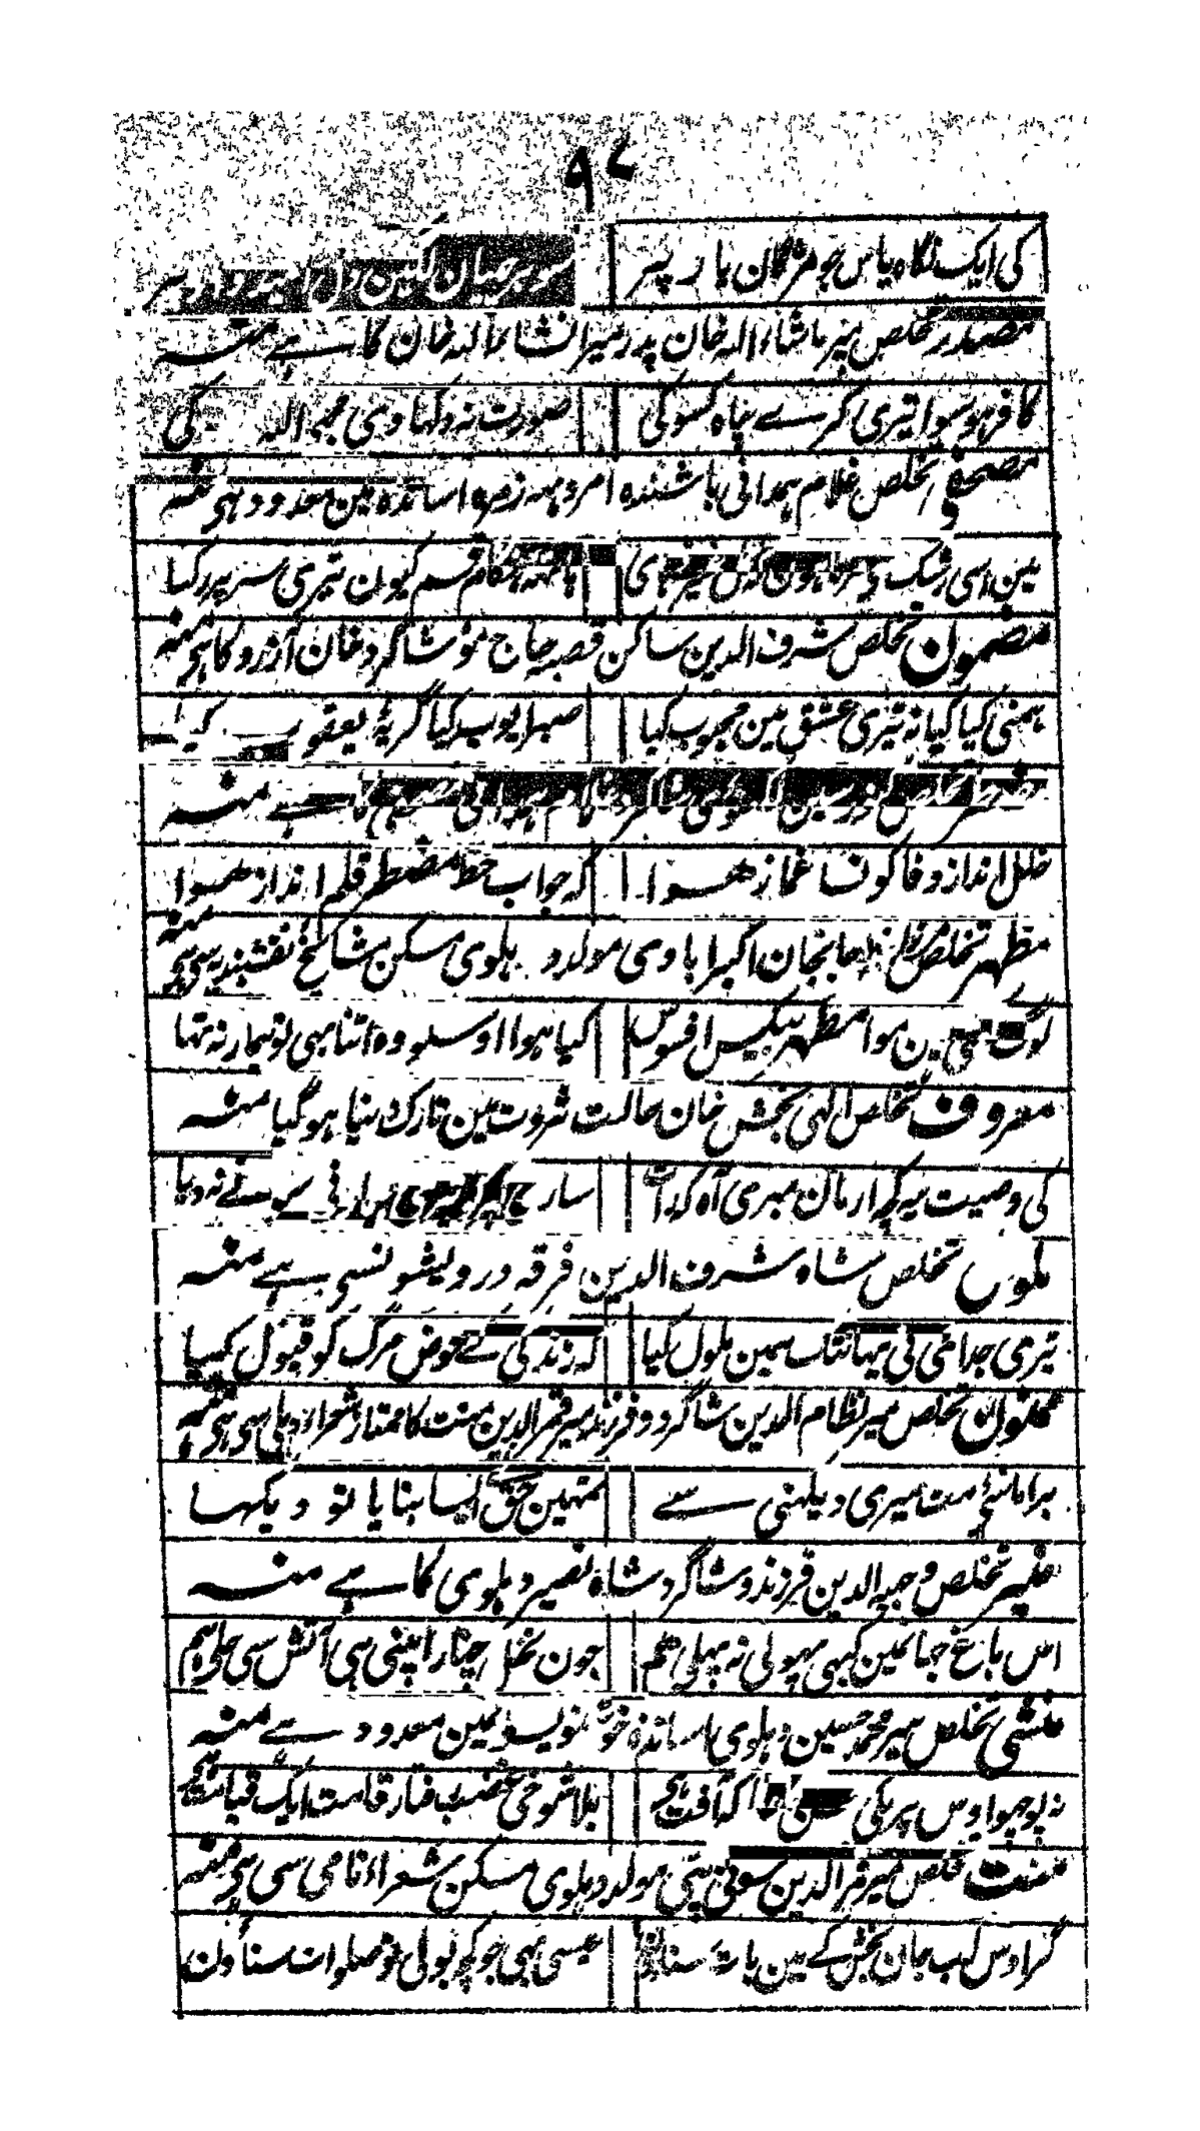 ٩٧
کی ایک نگاہ یاس جو مژگان یار پر
مصدر تخلص میر ماشاء اللہ خان پدر میر انشا اللہ خان کا ہے منہ
کافر ہو سوا تیری کرے چاہ کسو کی صورت نہ دکہاوی مجہے اللہ کی
مصحفی تخلص غلام ہمدانی باشندہ امروہہ زمرہ اساتذہ مین معدود ہی منہ
مین اسی رشک کام قسم کیون تیری سر پر رکہا
مضمون تخلص شرف الدین ساکن قصبہ جاج مؤ شاگرد خان آرزو کا ہی منہ
ہمنی کیا کیا نہ تیری عشق مین محبوب کیا صبر ایوب کیا گریۂ یعقوب کیا
ہے منہ
خلل انداز وفا کونسا غماز ہوا کہ جواب خط مضطر قلم انداز ہوا
مظہر تخلص جانجان اکبرابادی مولد دہلوی مسکن مشائخ نقشبندیہ سی ہی منہ
لوگ ہین ہوا مظہر بیکس افسوس کیا ہوا اوسکو وہ اتنا بہی تو بیمار نہ تہا
معروف تخلص الہی بخش خان حالت ثروت مین تارک دنیا ہو گیا منہ
کی وصیت یہ کچہ ارمان بہری آہ کہ رات نے نہ دیا
ملول تخلص شاہ شرف الدین فرقہ درویشونسی ہے منہ
تیری جدائی نی یہانتک ہمین ملول کیا کہ زندگی کے عوض مرگ کو قبول کیا
ممنون تخلص میر نظام الدین شاگرد و فرزند میر قمر الدین منت کا ممتاز شعراء دہلی سی ہی منہ
برا مانئی مت میری دیکہنی سے تمہین حق نی ایسا بنایا تو دیکہا
منیر تخلص وجیہ الدین فرزند و شاگرد شاہ نصیر دہلوی کا ہے منہ
اس باغ جہانمین کبہی پہولی نہ پہلی ہم جون نخل چنار اپنی ہی آتش سی جلی ہم
منشی تخلص میر محمد حسین دہلوی اساتذہ خوشنویسونمین معدود ہے منہ
نہ پوچہو اوس پری کی کہ آفت ہی بلا شوخی غضب رفتار قامت ایک قیامت ہی
منت تخلص میر قمر الدین سونی پتی مولد دہلوی مسکن شعراء نامی سی ہی منہ
گر اوس لب جان بخش کے مین بات سناؤن عیسی بہی جو کچہ بولی تو صلوات سناؤن